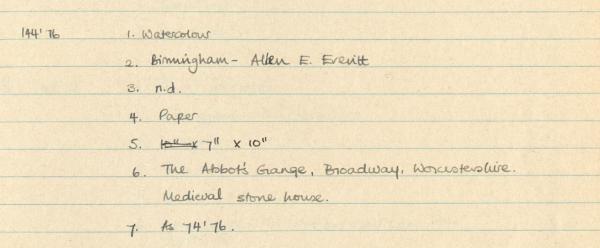 144'76 1. Watercolour
2. Birmingham - Allen E. Everitt
3. n.d.
4. Paper
5. 10" x 7" x 10"
6. The Abbot's Grange, Broadway, Worcestershire.
Medieval stone house.
7. As 74'76.